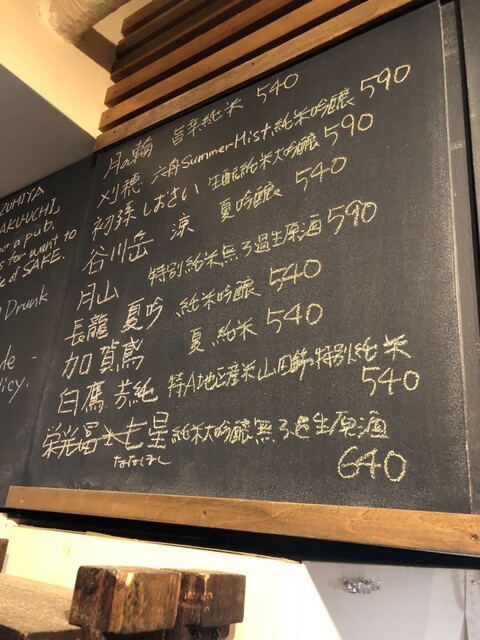 月の輪 旨辛純米 540
刈穂 六舟 Summer Mist 純米吟醸 590
初孫 しおさい 生酛純米大吟醸 590
谷川岳 涼 夏吟醸 540
月山 特別純米無ろ過生原酒 590
長龍 夏吟 純米吟醸 540
加賀鳶 夏純米 540
白鷹 芳純 特A地区産米山田錦特別純米
540
栄光冨士七星 純米大吟醸無ろ過生原酒
ななほし
640
ZUMIYA
AKU-UCHI
not a pub,
s for want to
e of SAKE.
Drunk
licy.